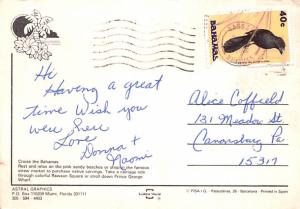 40c
BAHAMAS
Hi
Having a great
time Wish you
were here
Love
Donna +
Naomi
Alice Coffield
131 Meadow St.
Canonsburg Pa
15317
Cruise the Bahamas
Rest and relax on the pink sandy beaches or shop the famous
straw market to purchase native carvings. Take a carriage ride
through colorful Rawson Square or stroll down Prince George
Wharf.
ASTRAL GRAPHICS
P.O. Box 110209 Miami, Florida 33111
305 - 594 - 4403
Printed in Spain